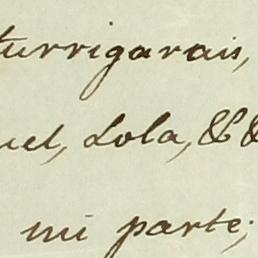 turrigarais,
uel, Lola, &&
mi parte;